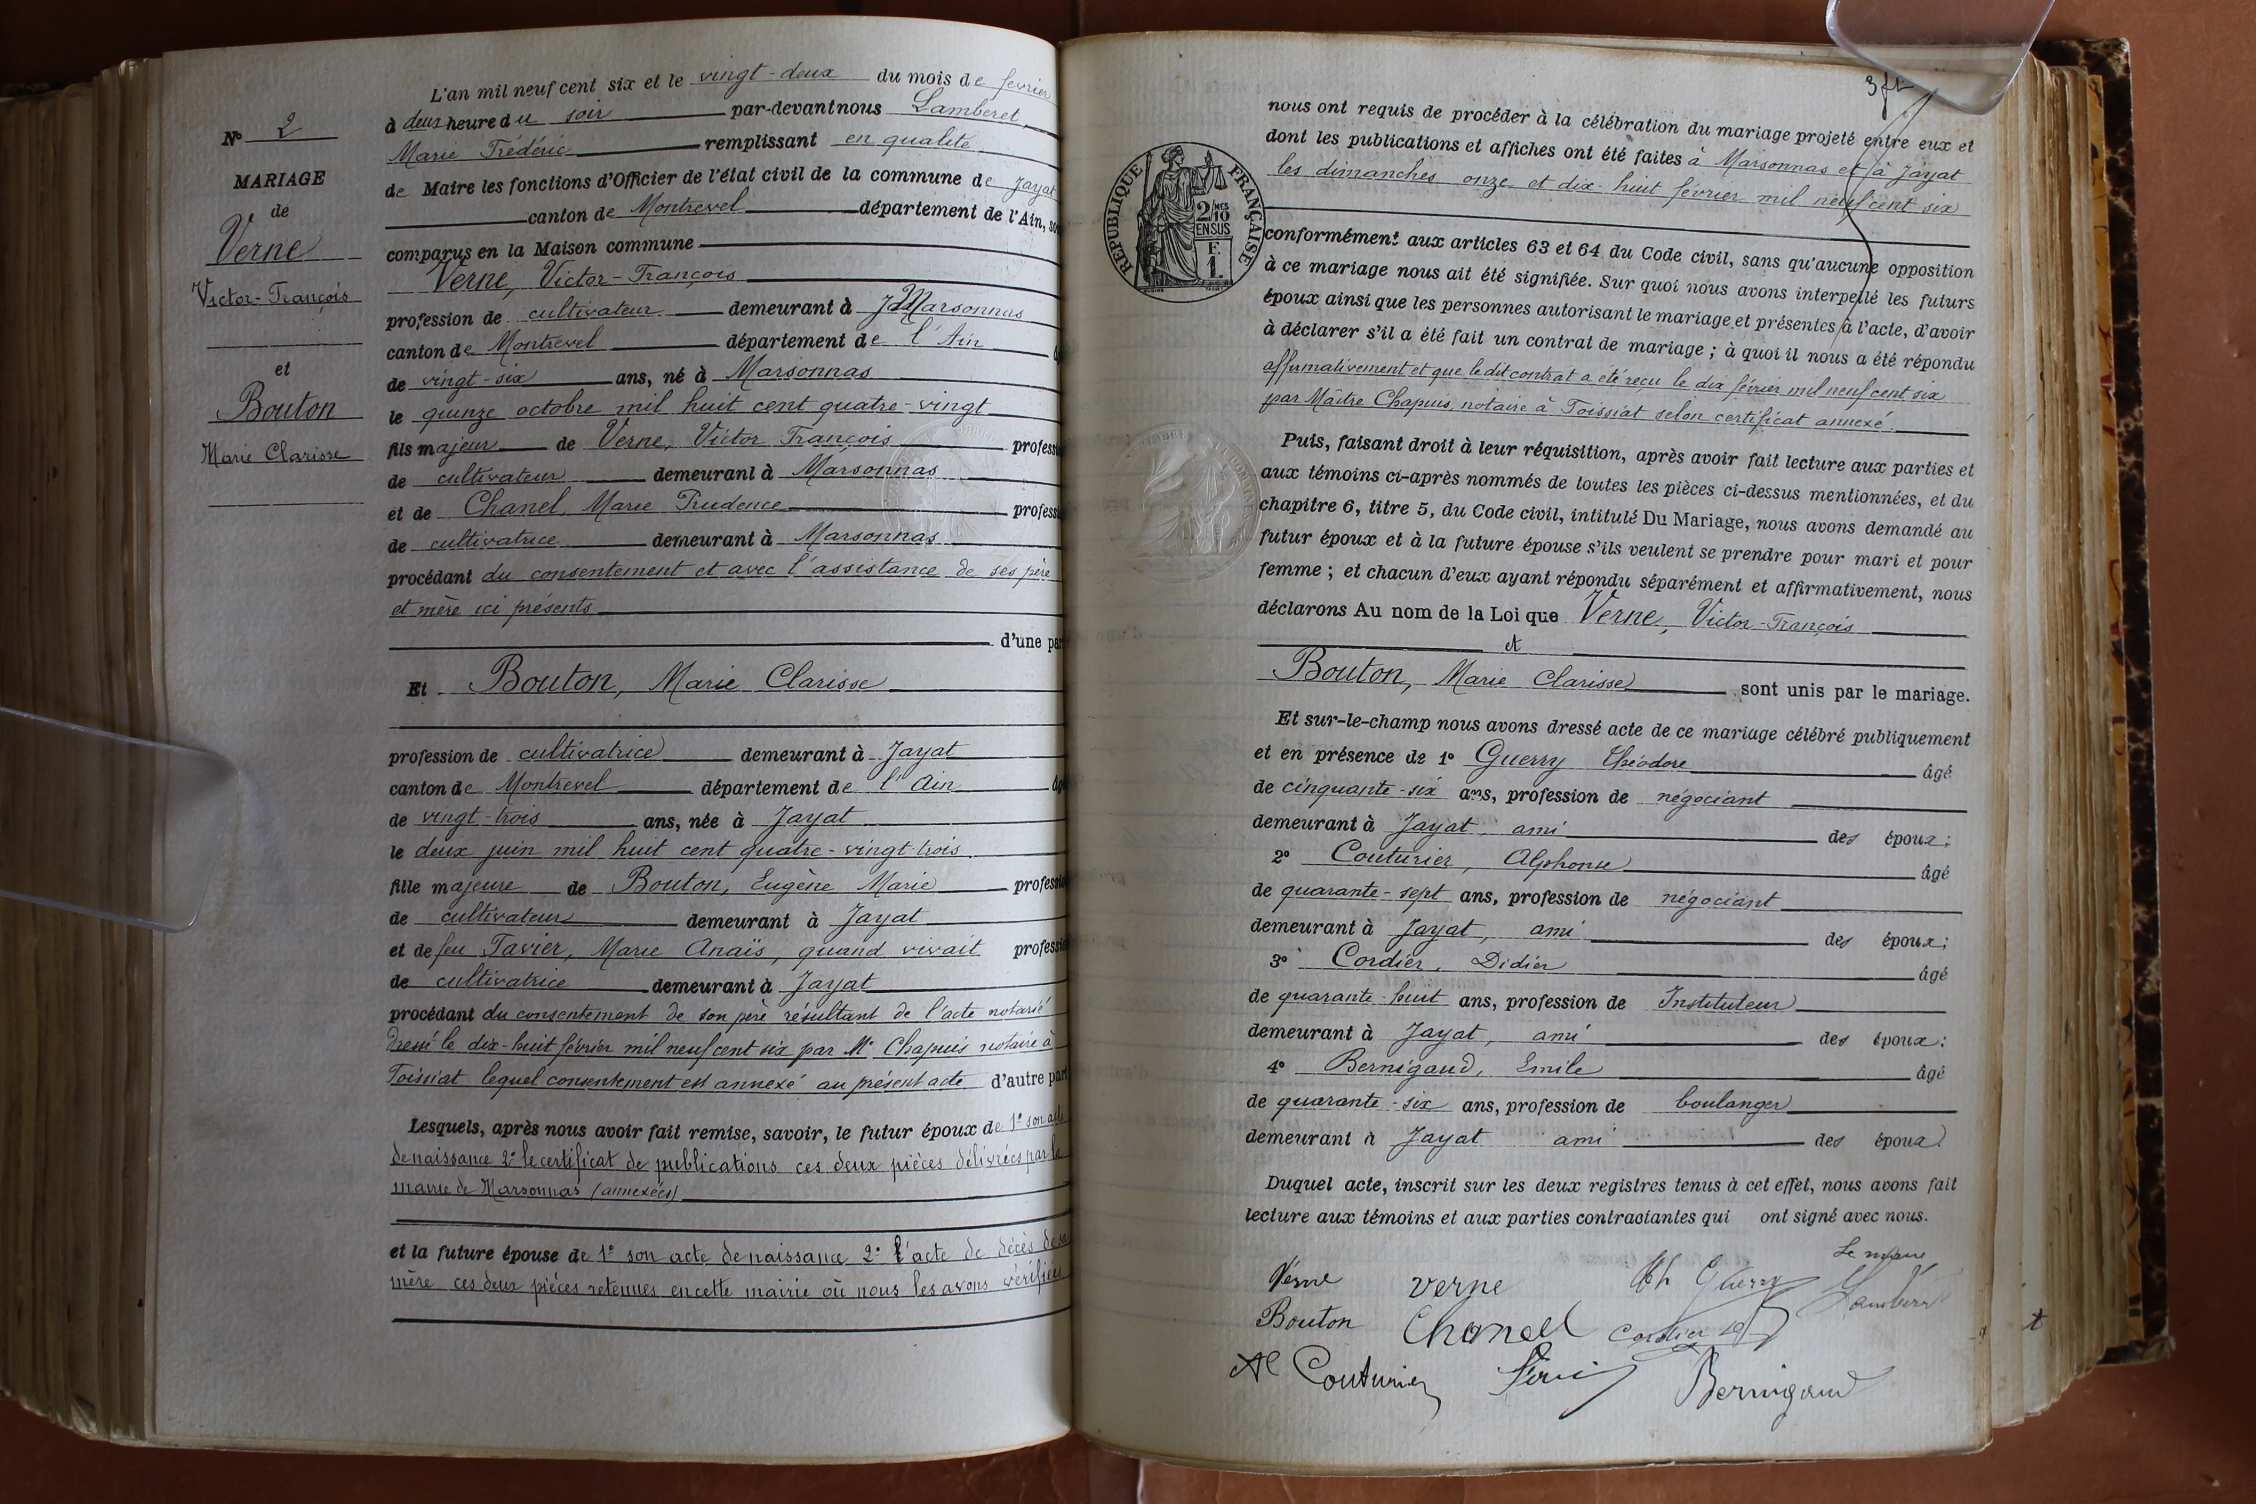 N° 2
MARIAGE
de
Verne
Victor-François
et
Bouton
Marie Clarisse
L'an mil neuf cent six et le vingt-deux du mois de février
à deux heure du soir par-devant nous Lamberet,
Marie Frédéric remplissant en qualité
de Maire les fonctions d'Officier de l'état civil de la commune de Jayat
canton de Montrevel département de l'Ain, so
comparus en la Maison commune
Verne, Victor-François
profession de cultivateur demeurant à Marsonnas
canton de Montrevel département de l'Ain
de vingt-six ans, né à Marsonnas
le quinze octobre mil huit cent quatre-vingt
fils majeur de Verne, Victor François profess
de cultivateur demeurant à Marsonnas
et de Chanel, Marie Prudence profess
de cultivatrice demeurant à Marsonnas
procédant du consentement et avec l'assistance de ses père
et mère ici présents
d'une par
Et Bouton, Marie Clarisse
profession de cultivatrice demeurant à Jayat
canton de Montrevel département de l'Ain âgé
de vingt-trois ans, née à Jayat
le deux juin mil huit cent quatre-vingt-trois
fille majeure de Bouton, Eugène Marie professio
de cultivateur demeurant à Jayat
et de feu Tavier, Marie Anaïs, quand vivait professio
de cultivatrice demeurant à Jayat
procédant du consentement de son père résultant de l'acte notarié
dressé le dix-huit février mil neuf cent six par Me Chapuis notaire à
Foissiat lequel consentement est annexé au présent acte d'autre part
Lesquels, après nous avoir fait remise, savoir, le futur époux de 1° son acte
de naissance 2° le certificat de publications ces deux pièces délivrées par la
mairie de Marsonnas (annexées)
et la future épouse de 1° son acte de naissance 2° l'acte de décès de sa
mère ces deux pièces retenues en cette mairie où nous les avons vérifiées
3ft
nous ont requis de procéder à la célébration du mariage projeté entre eux et
dont les publications et affiches ont été faites à Marsonnas et à Jayat
les dimanches onze et dix-huit février mil neuf cent six
RÉPUBLIQUE FRANÇAISE
2/10 EN SUS
F. 1.
conformément aux articles 63 et 64 du Code civil, sans qu'aucune opposition
à ce mariage nous ait été signifiée. Sur quoi nous avons interpellé les futurs
époux ainsi que les personnes autorisant le mariage et présentes à l'acte, d'avoir
à déclarer s'il a été fait un contrat de mariage ; à quoi il nous a été répondu
affirmativement et que ledit contrat a été reçu le dix février mil neuf cent six
par Maître Chapuis, notaire à Foissiat selon certificat annexé.
Puis, faisant droit à leur réquisition, après avoir fait lecture aux parties et
aux témoins ci-après nommés de toutes les pièces ci-dessus mentionnées, et du
chapitre 6, titre 5, du Code civil, intitulé Du Mariage, nous avons demandé au
futur époux et à la future épouse s'ils veulent se prendre pour mari et pour
femme ; et chacun d'eux ayant répondu séparément et affirmativement, nous
déclarons Au nom de la Loi que Verne, Victor-François
et
Bouton, Marie Clarisse sont unis par le mariage.
Et sur-le-champ nous avons dressé acte de ce mariage célébré publiquement
et en présence de 1° Guerry Théodore âgé
de cinquante-six ans, profession de négociant
demeurant à Jayat ami des époux;
2° Couturier, Alphonse âgé
de quarante-sept ans, profession de négociant
demeurant à Jayat, ami des époux;
3° Cordier, Didier âgé
de quarante-huit ans, profession de Instituteur
demeurant à Jayat, ami des époux;
4° Bernigaud, Emile âgé
de quarante-six ans, profession de boulanger
demeurant à Jayat ami des époux
Duquel acte, inscrit sur les deux registres tenus à cet effet, nous avons fait
lecture aux témoins et aux parties contractantes qui ont signé avec nous.
Le maire
Verne verne Th Guerry Lamberet
Bouton Chanel Cordier
Al Couturier Bernigaud